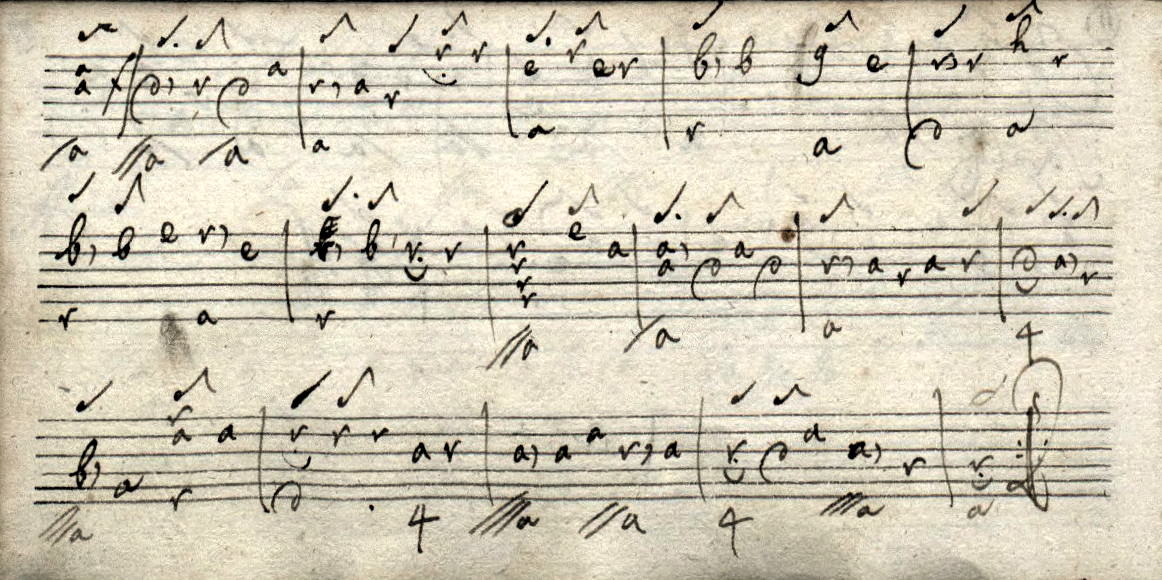 a a /a | d //a r d /a a | r a a r r r | e a r e r | b r b g a e | r d r h a r
b r b e r a e | r b r r | r r r r //a e a | a a /a d a d | r a a r a r | d 4 a r
b ///a a r a r a | r d r r a 4 r | a ///a a a //a r a | r 4 d a a ///a r | r a